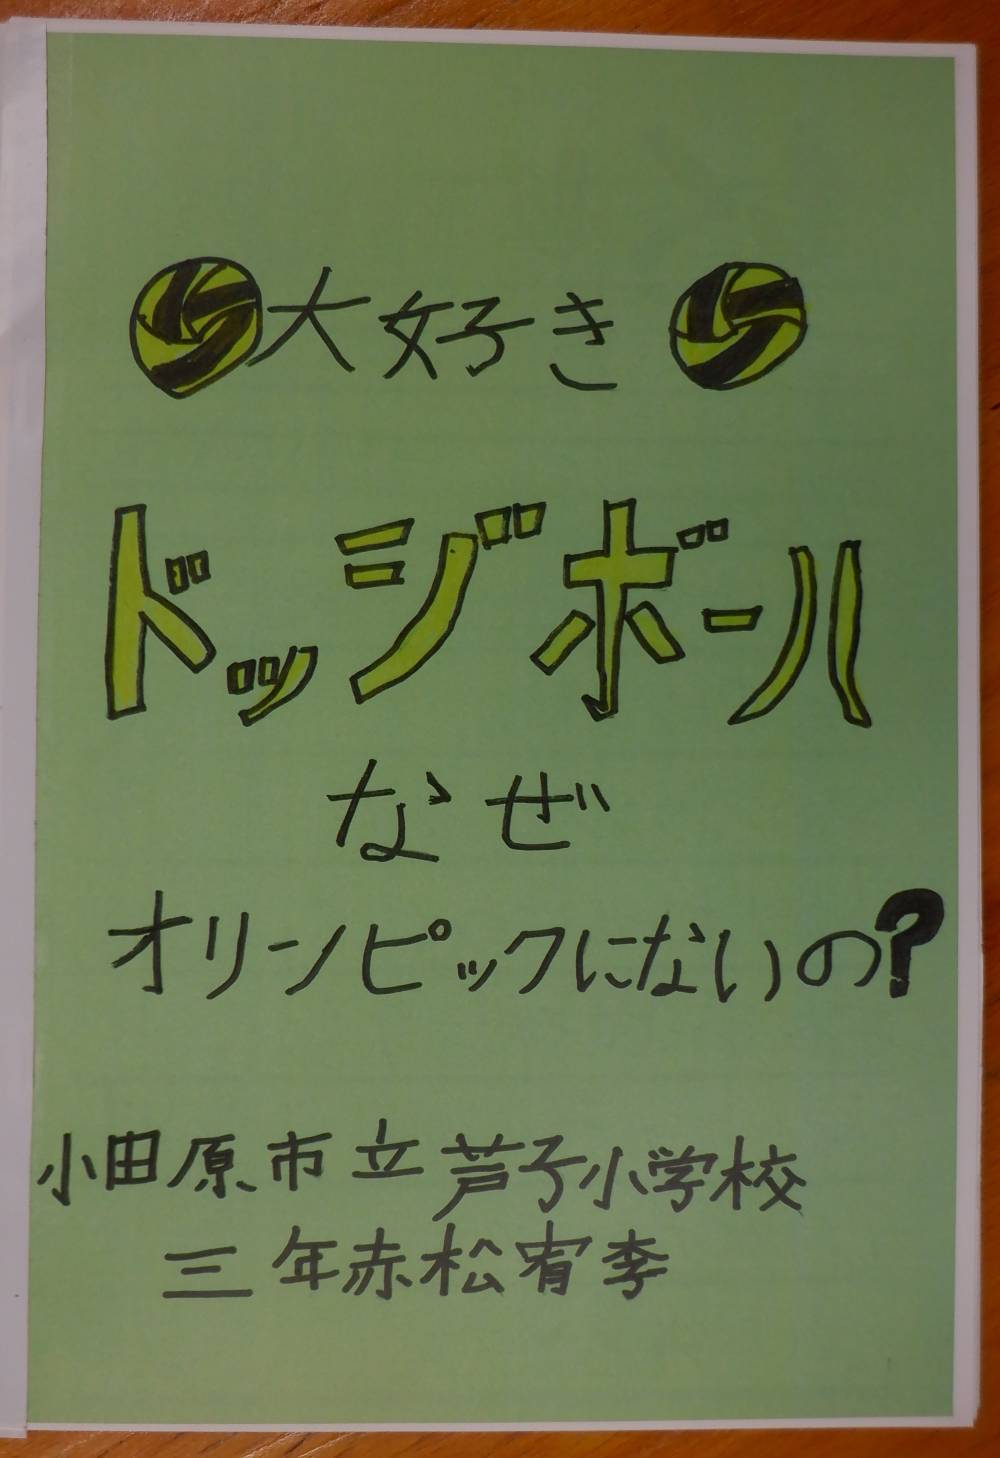 大好き
ドッジボール
なぜ
オリンピックにないの?
小田原市立芦子小学校
三年赤松宥李